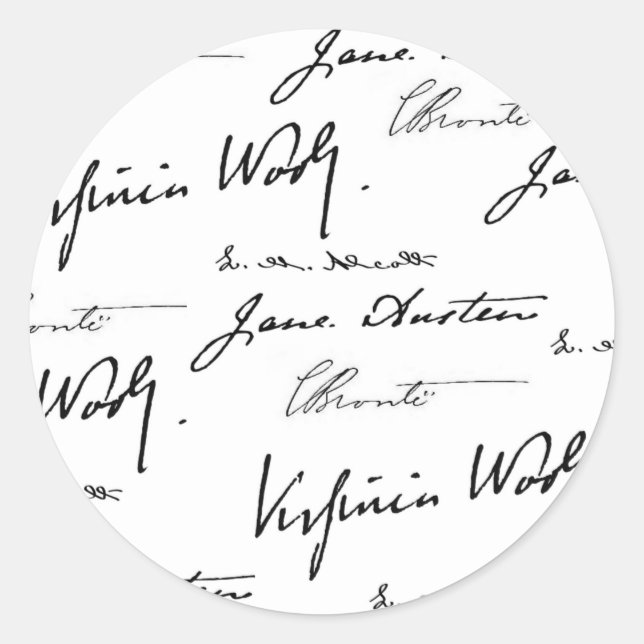 Jane.
CBrontë
Virginia Woolf.
Jane
L. M. Alcott
Brontë
Jane Austen
L. M.
Woolf.
CBrontë
Alcott
Virginia Woolf
Austen
L.